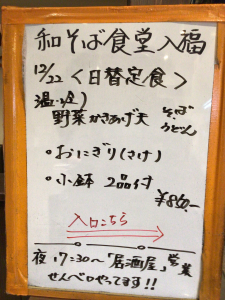 和そば食堂入福
12/22 〈日替定食〉
温(冷)
野菜かきあげ天 そば うどん
・おにぎり(さけ)
・小鉢 2品付
¥860-
入口こちら
夜17:30〜「居酒屋」営業
せんベロやってます!!